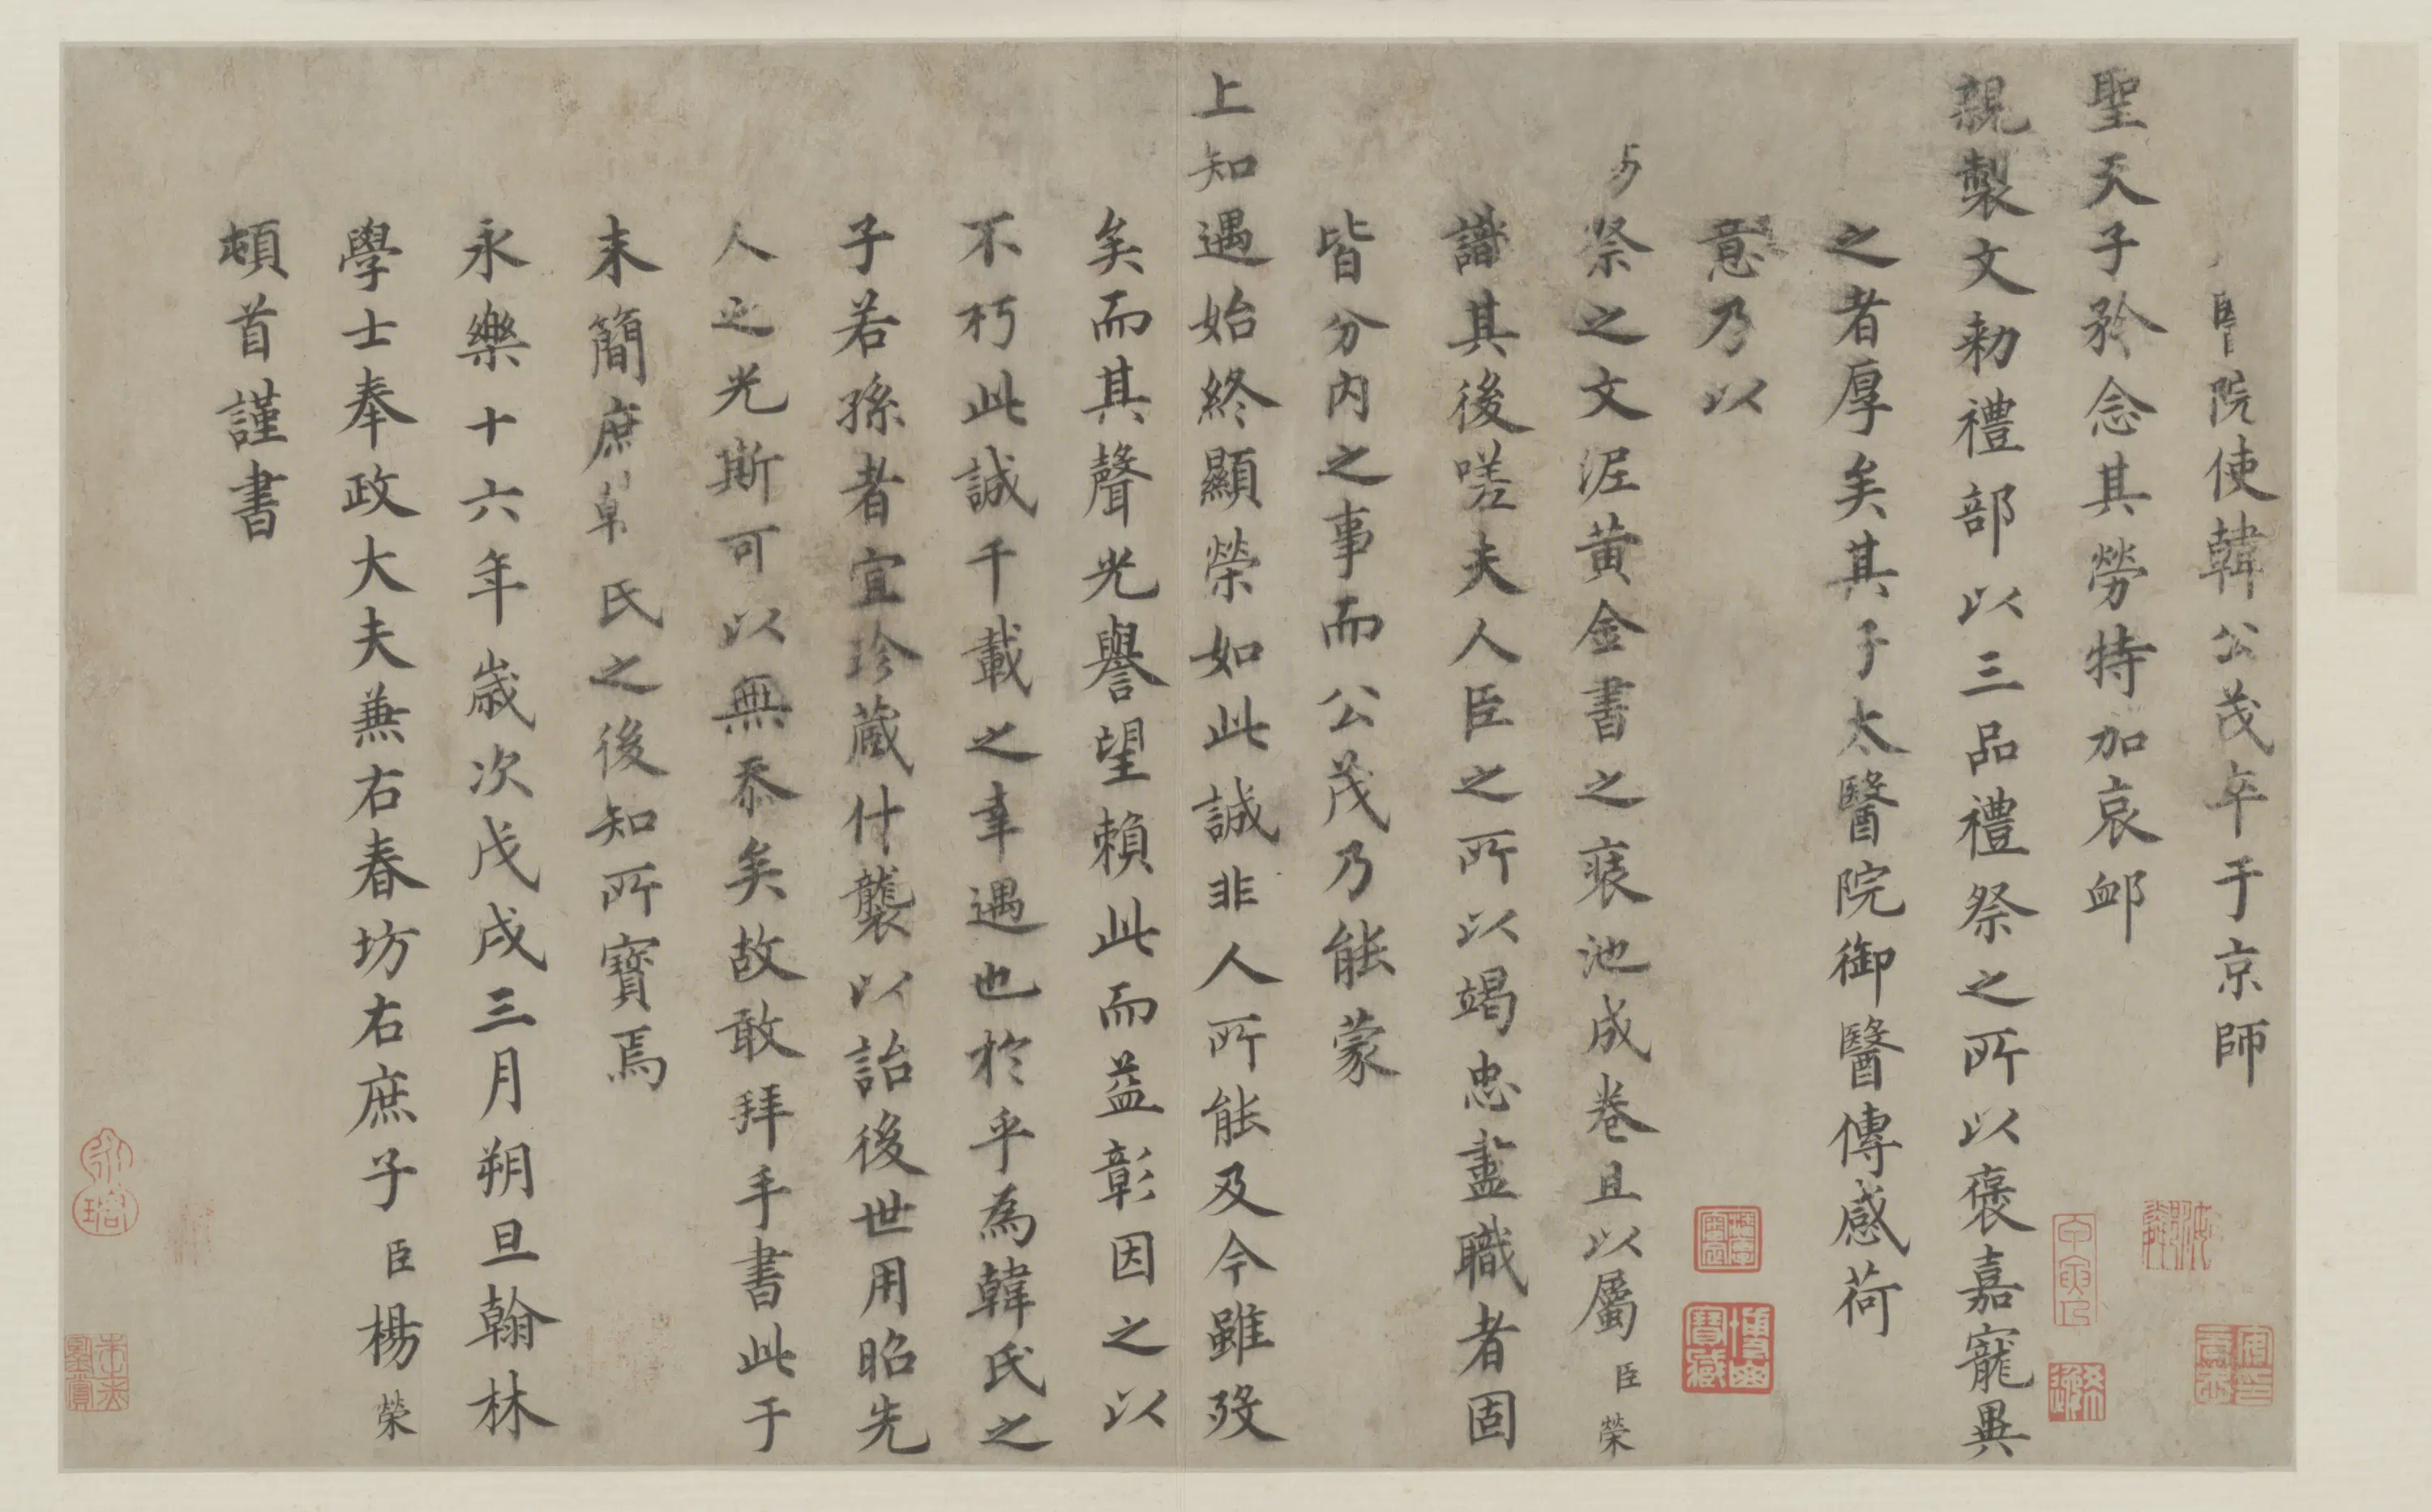 醫院使韓公茂卒于京師
聖天子矜念其勞特加哀卹
親製文勑禮部以三品禮祭之所以褒嘉寵異
之者厚矣其子太醫院御醫傳感荷
意乃以
祭之文泥黃金書之裒池成卷且以屬臣榮
譜其後嗟夫人臣之所以竭忠盡職者固
皆分內之事而公茂乃能蒙
上知遇始終顯榮如此誠非人所能及今雖歿
矣而其聲光譽望賴此而益彰因之以
不朽此誠千載之幸遇也於乎為韓氏之
子若孫者宜珍藏什襲以詒後世用昭先
人之光斯可以無忝矣故敢拜手書此于
末簡庶韓氏之後知所寶焉
永樂十六年歲次戊戌三月朔旦翰林
學士奉政大夫兼右春坊右庶子臣楊榮
頓首謹書